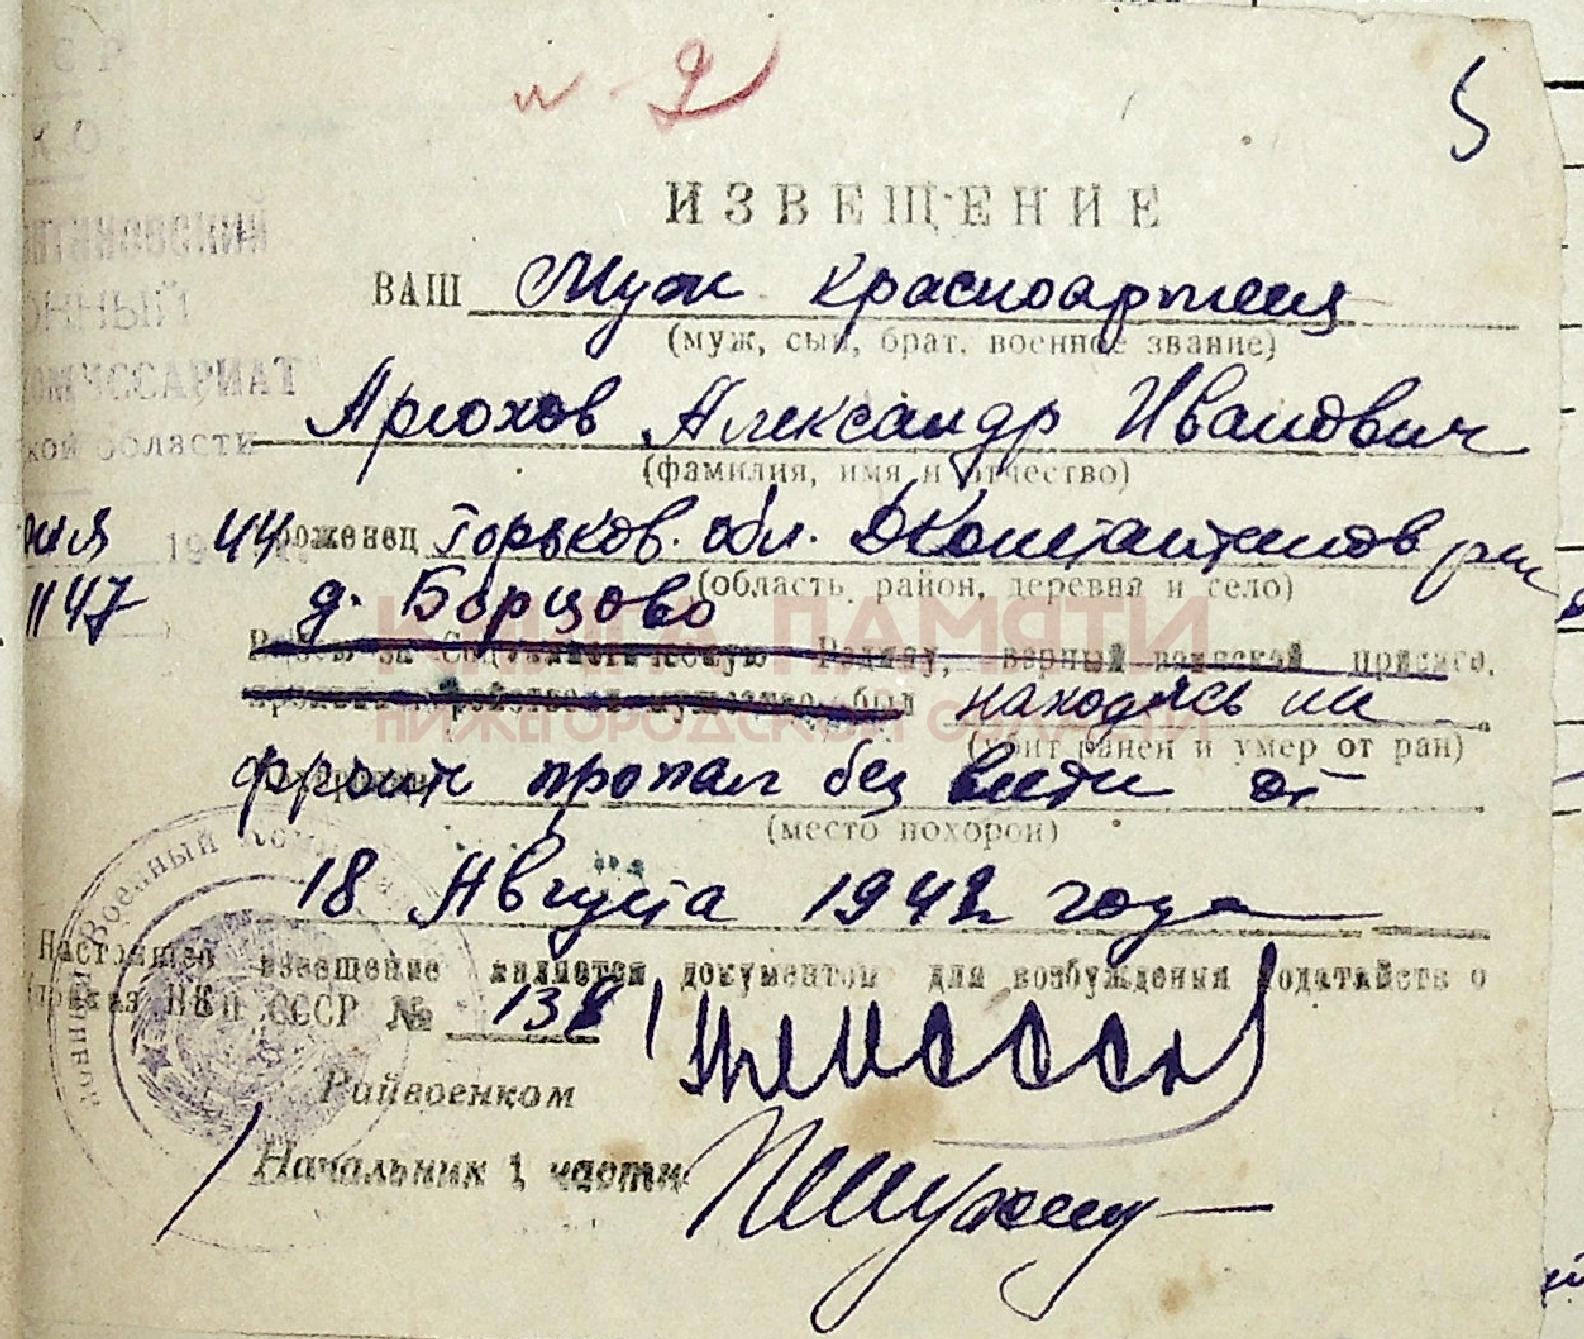 № 2
5
ИЗВЕЩЕНИЕ
ВАШ Муж красноармеец
(муж, сын, брат, военное звание)
Арюхов Александр Иванович
(фамилия, имя и отчество)
роженец Горьков. обл. ДКонстантинов рн
(область, район, деревня и село)
д. Борцово
В бою за Социалистическую Родину, верный воинской присяге,
проявив геройство и мужество, был находясь на
(убит, ранен и умер от ран)
фронте пропал без вести от
(место похорон)
18 Августа 1942 года
Настоящее извещение является документом для возбуждения ходатайств о
(приказ НКО СССР № 138
Райвоенком
Начальник 1 части
КОМИССАРИАТ
кой области
194 44
1147
Военный
КНИГА ПАМЯТИ
НИЖЕГОРОДСКОЙ ОБЛАСТИ